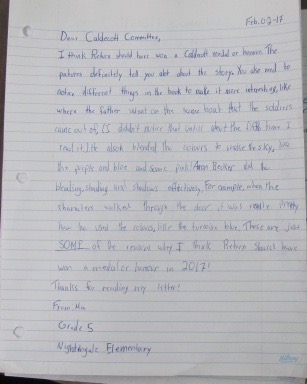 Feb. 02-17
Dear Caldecott Committee,
I think Return should have won a Caldecott medal or honour. The
pictures definitely tell you alot about the story. You also need to
notice different things in the book to make it more interesting, like
where the father went on the boat that the soldiers
came out of, (I didn't notice that until about the fifth time I
read it). He also blended the colours to make the sky, like
the purple and blue and some pink! Aaron Becker did the
blending, shading and shadows effectively. For example, when the
characters walked through the door it was really pretty
how he used the colours, like the turquoise blue. These are just
SOME of the reasons why I think Return should have
won a medal or honour in 2017!
Thanks for reading my letter!
From, Mia
Grade 5
Nightingale Elementary